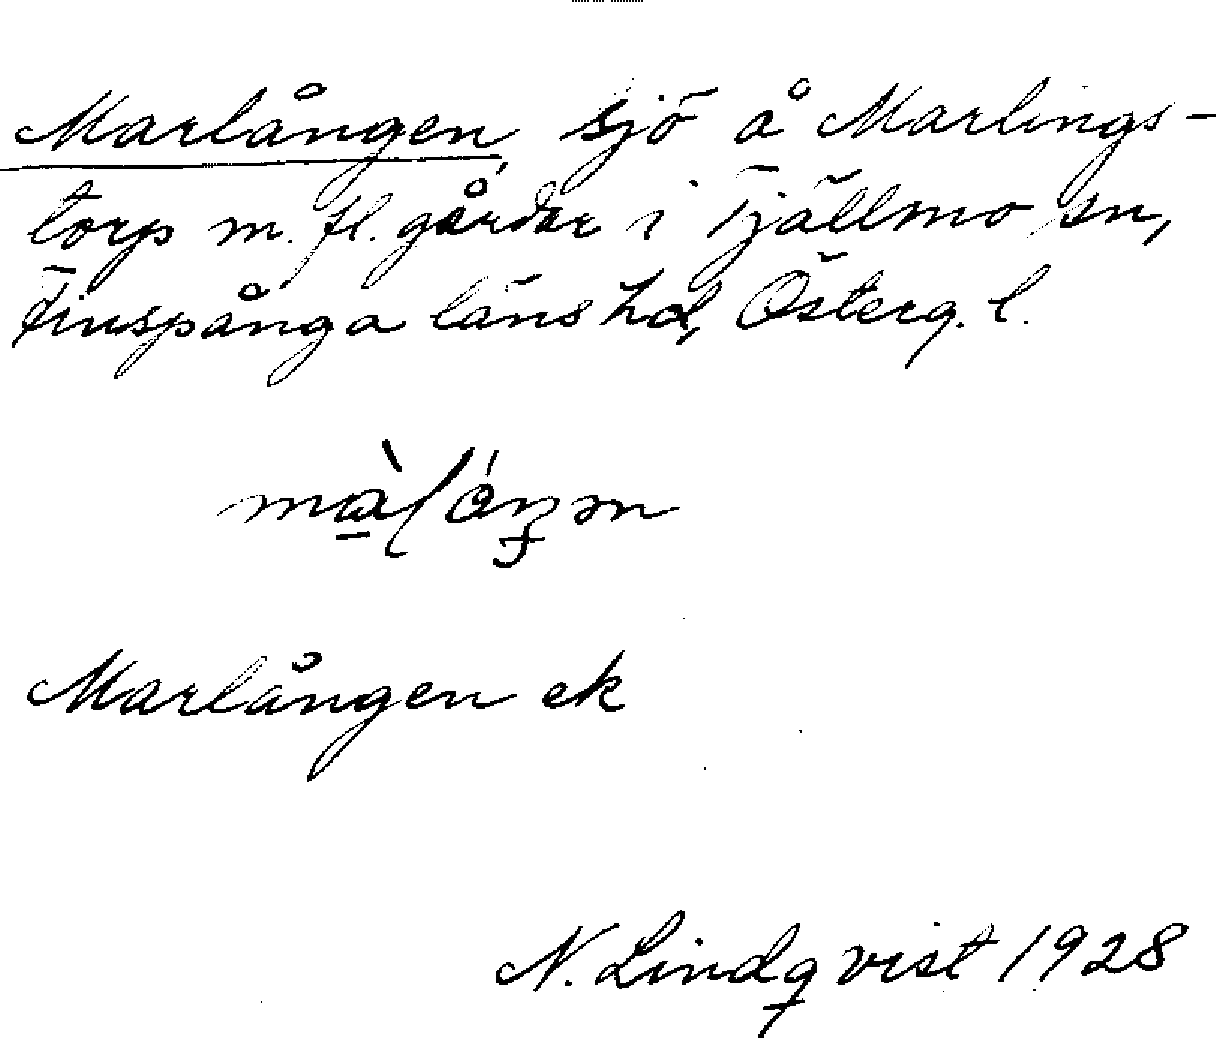 Marlången, sjö å Marlings-
torp m. fl. gårdar i Tjällmo sn,
Finspånga läns hd, Österg. l.
Marlången ek
N. Lindqvist 1928